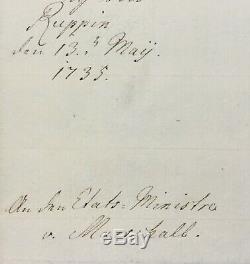 Ruppin
den 13.ᵗ May.
1735.
An den Etats-Ministre
v. Marschall.